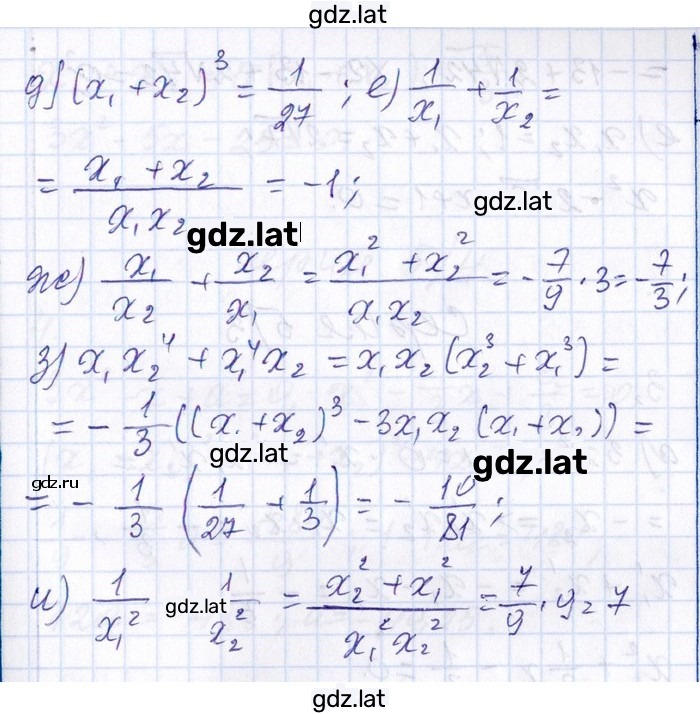 gdz.lat
д) (x₁ + x₂)³ = 1/27 ; е) 1/x₁ + 1/x₂ =
= (x₁ + x₂)/(x₁x₂) = -1;
gdz.lat
gdz.lat
ж) x₁/x₂ + x₂/x₁ = (x₁² + x₂²)/(x₁x₂) = - 7/9 · 3 = - 7/3;
з) x₁x₂⁴ + x₁⁴x₂ = x₁x₂(x₂³ + x₁³) =
= - 1/3 ((x₁ + x₂)³ - 3x₁x₂(x₁ + x₂)) =
gdz.lat
gdz.lat
gdz.ru
= - 1/3 (1/27 + 1/3) = - 10/81 ;
и) 1/x₁² 1/x₂² = (x₂² + x₁²)/(x₁²x₂²) = 7/9 · 9 = 7
gdz.lat
gdz.lat